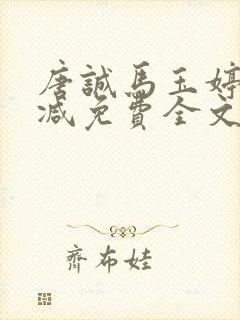 唐誠馬玉婷
減免費全文
齊布娃